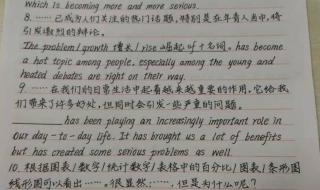 which is becoming more and more serious.
8. ……已成为人们关注的热门话题,特别是在年青人当中,将
引发激烈的辩论。
The problem / growth 增长 / rise 崛起 of + 名词. has become
a hot topic among people, especially among the young and
heated debates are right on their way.
9. ……在我们的日常生活中起着越来越重要的作用,它给我
们带来了许多好处,但同时也引发一些严重的问题。
____ has been playing an increasingly important role in
our day-to-day life. It has brought us a lot of benefits
but has created some serious problems as well.
10. 根据图表/数字/统计数字/表格中的百分比/图表/条形图
线形图可以看出……。很显然……,但是为什么呢?